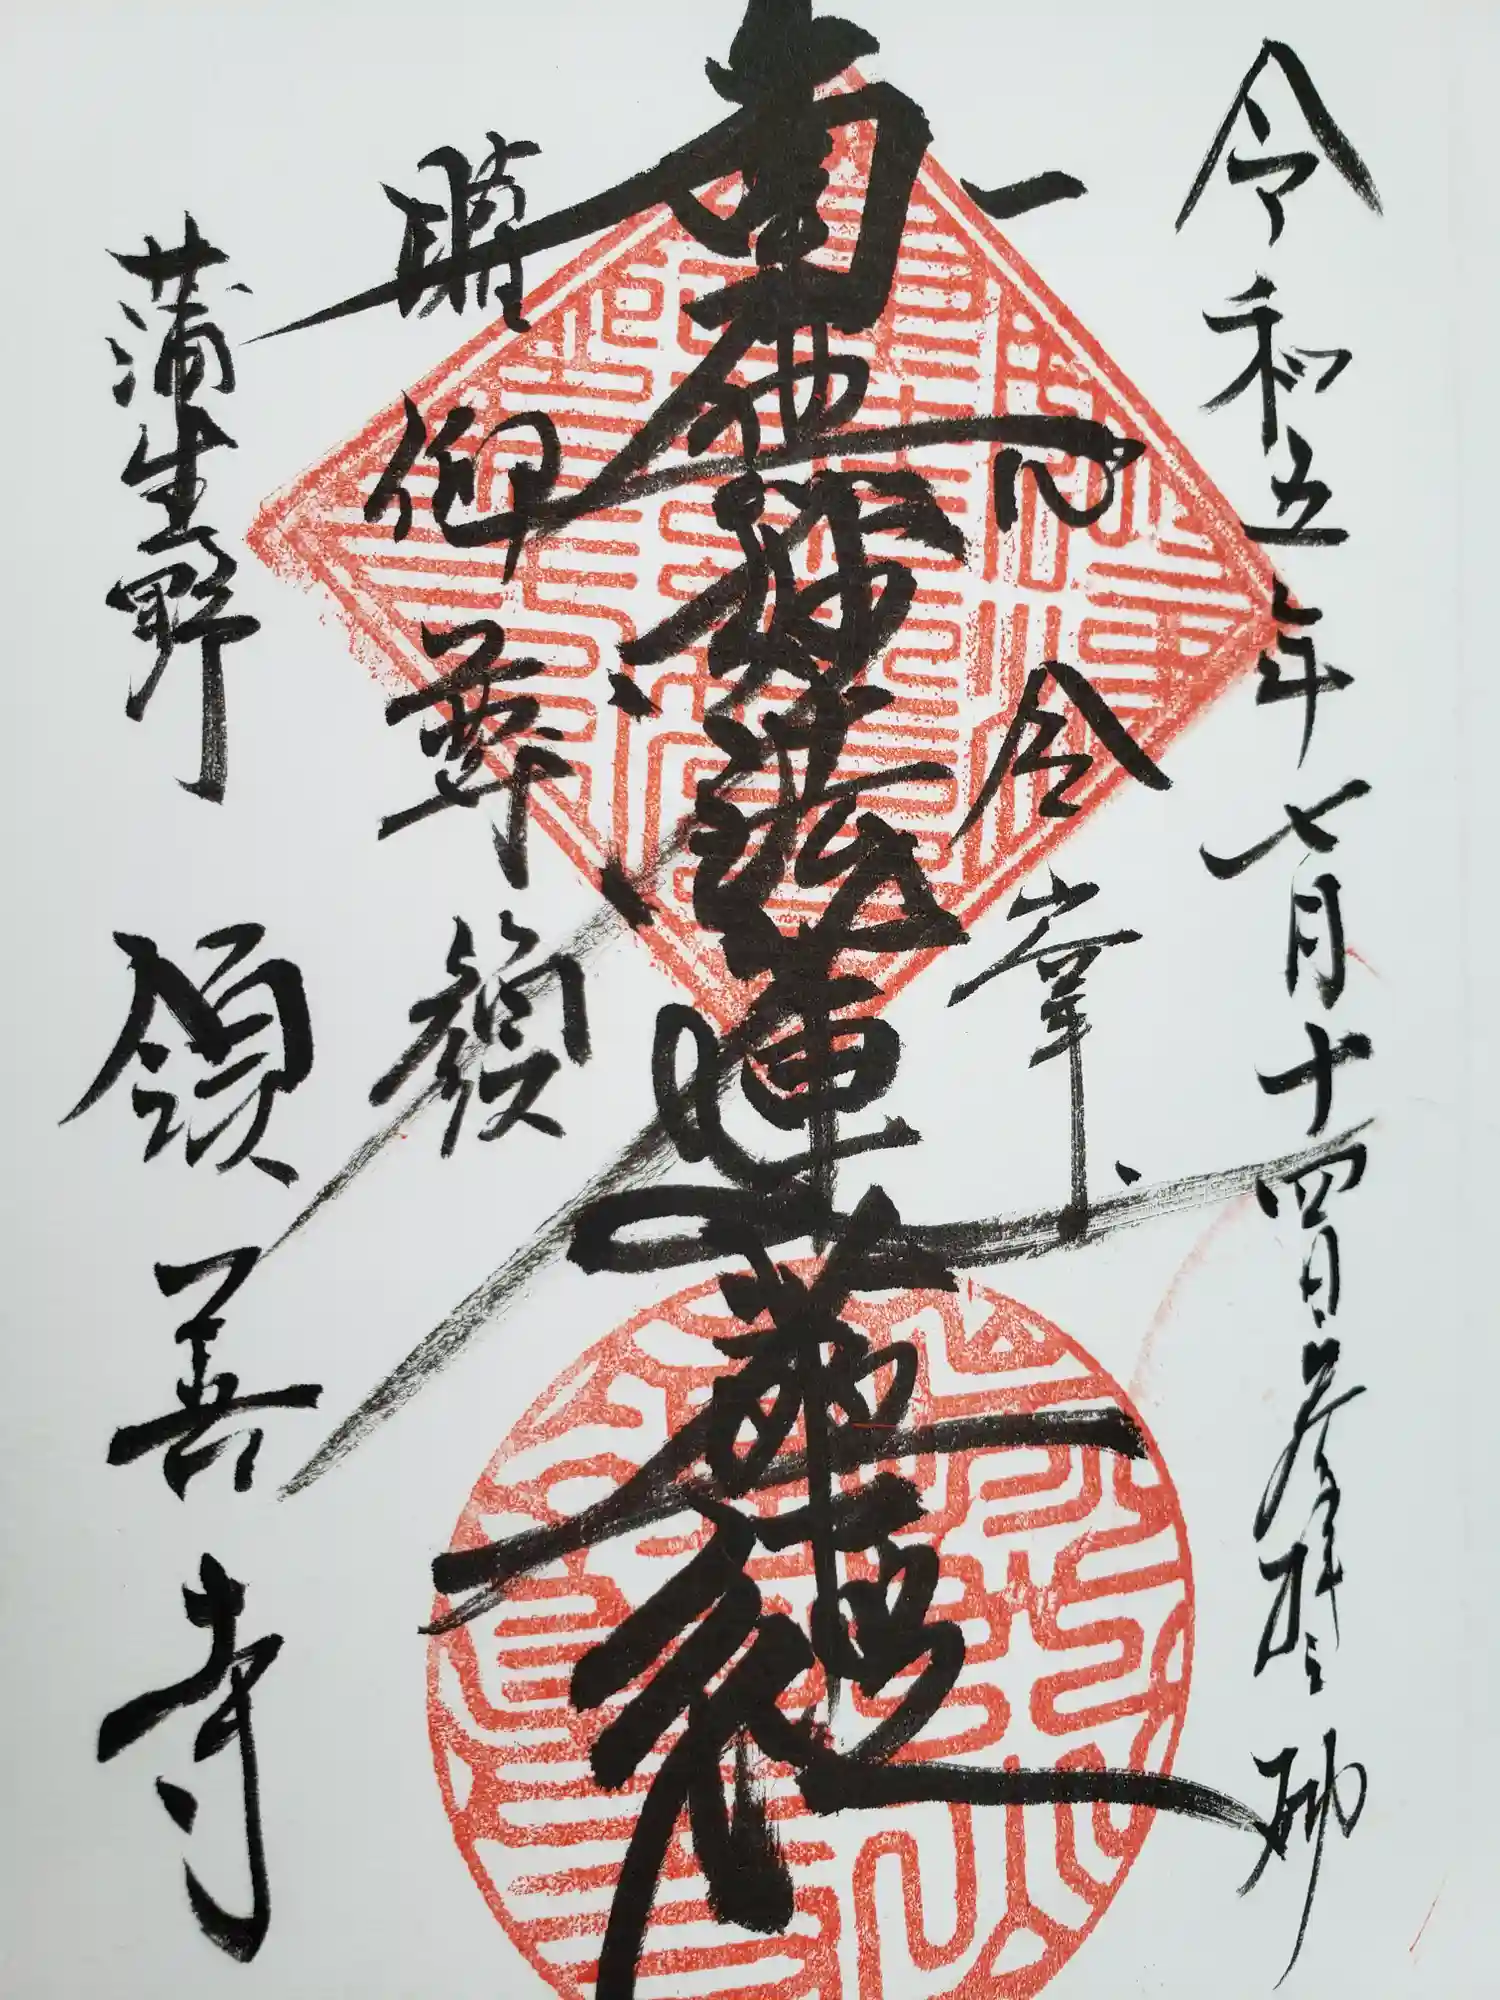 令和五年七月十四日参拝之砌
一心合掌
南無妙法蓮華経
瞻仰尊顔
蒲生野 領善寺